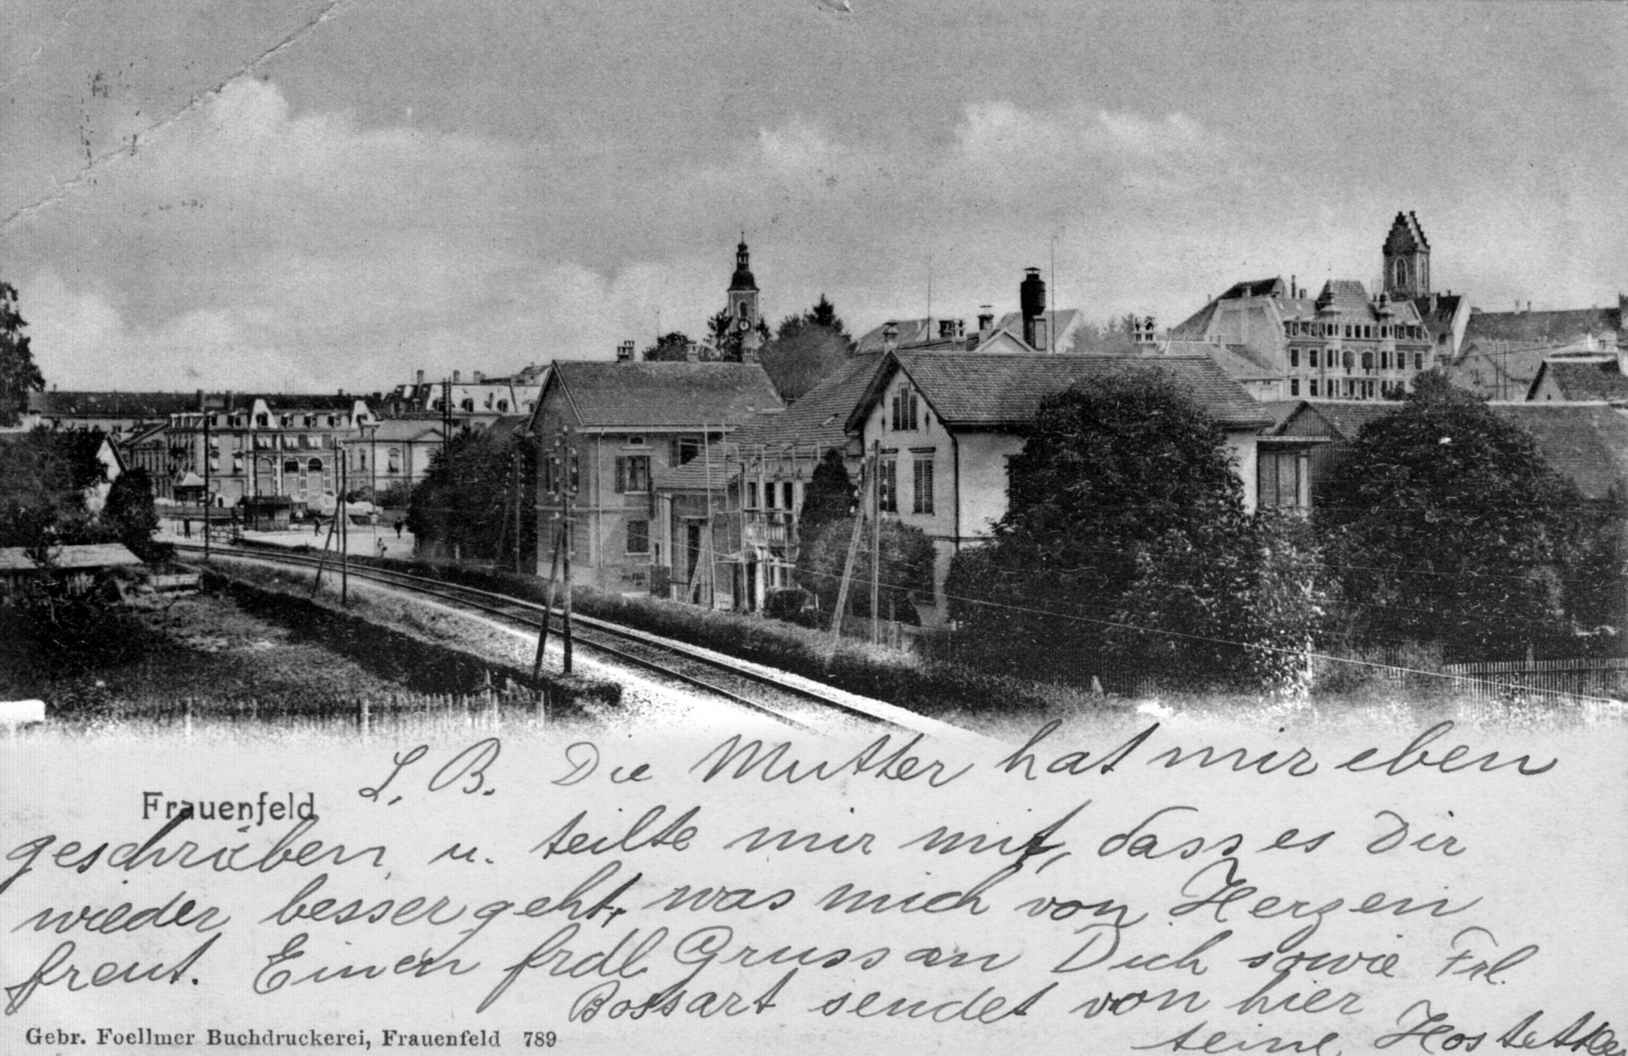 Frauenfeld
L. B. Die Mutter hat mir eben
geschrieben u. teilte mir mit, dass es Dir
wieder besser geht, was mich von Herzen
freut. Einen frdl. Gruss an Dich sowie Frl.
Bossart sendet von hier
Gebr. Foellmer Buchdruckerei, Frauenfeld 789